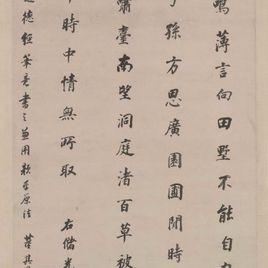 鳴薄言向田墅不能自
孫方思廣園圃閒時
嘯臺南望洞庭渚百草被
時中情無所取 右儲光
德經筆意書之兼用款原法 董其